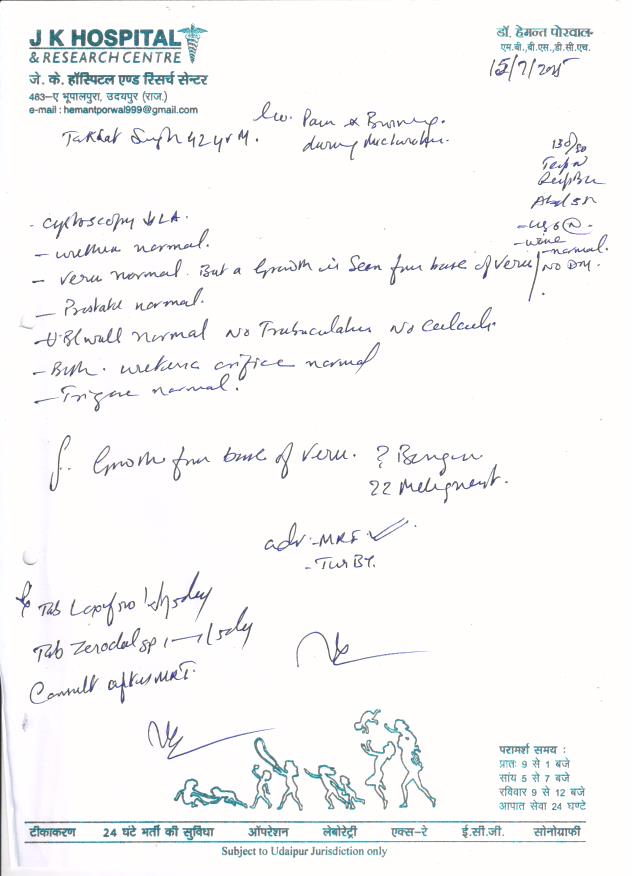 J K HOSPITAL
& RESEARCH CENTRE
जे. के. हॉस्पिटल एण्ड रिसर्च सेन्टर
463-ए भूपालपुरा, उदयपुर (राज.)
e-mail : hemantporwal999@gmail.com
डॉ. हेमन्त पोरवाल
एम.बी.,बी.एस.,डी.सी.एच.
Takhat Singh 42 yr M.
Pain & Burning
during micturation.
130/80
- cystoscopy LA.
- urethra normal.
- Veru normal. But a Growth is Seen from base of Veru
- urine
- normal.
NO DM.
- Prostate normal.
- U. Bl wall normal No Trabeculation No Calculi
- orifice normal
- Trigone normal.
Growth from base of Veru. ? Bengin
?? Malignent.
adv - MRI
- TURBT.
Tab 5 day
Tab Zerodol sp 1—1/5dy
Consult after MRI.
परामर्श समय :
प्रातः 9 से 1 बजे
सांय 5 से 7 बजे
रविवार 9 से 12 बजे
आपात सेवा 24 घण्टे
टीकाकरण 24 घंटे भर्ती की सुविधा ऑपरेशन लेबोरेट्री एक्स-रे ई.सी.जी. सोनोग्राफी
Subject to Udaipur Jurisdiction only